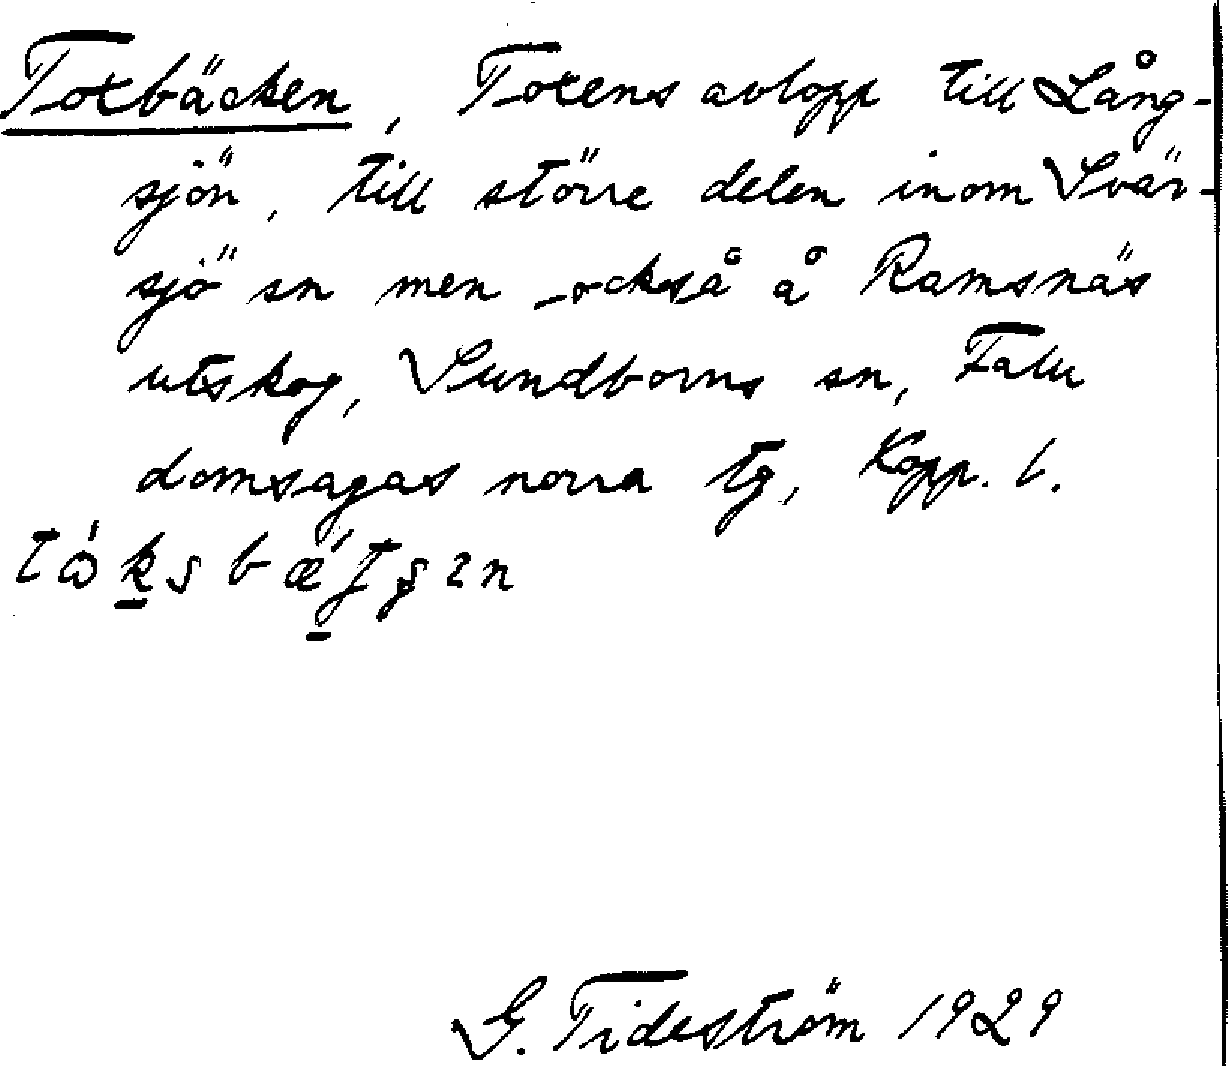 Toxbäcken, Toxens avlopp till Lång-
sjön, till större delen inom Svär-
sjö sn men också å Ramsnäs
utskog, Sundborns sn, Falu
domsagas norra tg, Kopp. l.
G. Tideström 1929